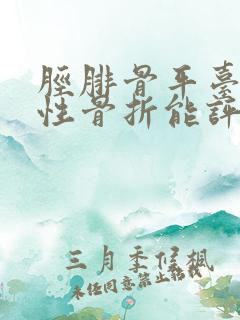 脛腓骨平臺
性骨折能評
三月季候楓
未經同意禁止轉載